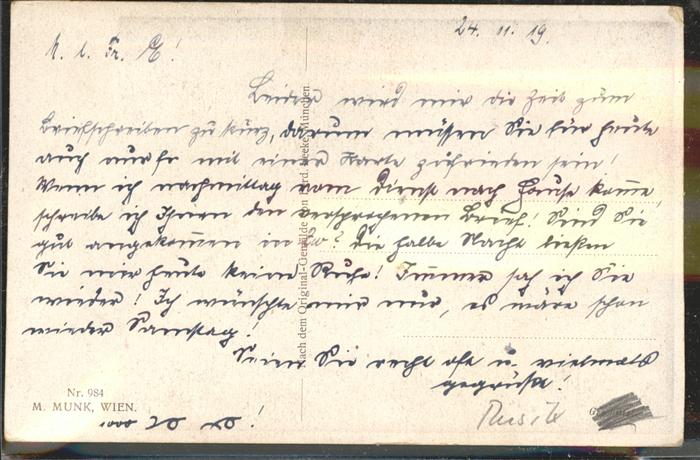 24. 11. 19.
M. l. Fr. E!
Leider wird mir die Zeit zum
Briefschreiben zu kurz, darum müssen Sie für heute
auch nur mit einer Karte zufrieden sein!
Wenn ich nachmittag vom Dienst nach Hause komme,
schreibe ich Ihnen den versprochenen Brief! Sind Sie
gut angekommen in ? Die halbe Nacht ließen
Sie mir heute keine Ruhe! Immer sah ich Sie
wieder! Ich wünschte mir nur, es wäre schon
wieder Samstag!
Seien Sie recht oft u. vielmals
gegrüßt!
Nach dem Original-Gemälde von München
Nr. 984
M. MUNK, WIEN.
1000